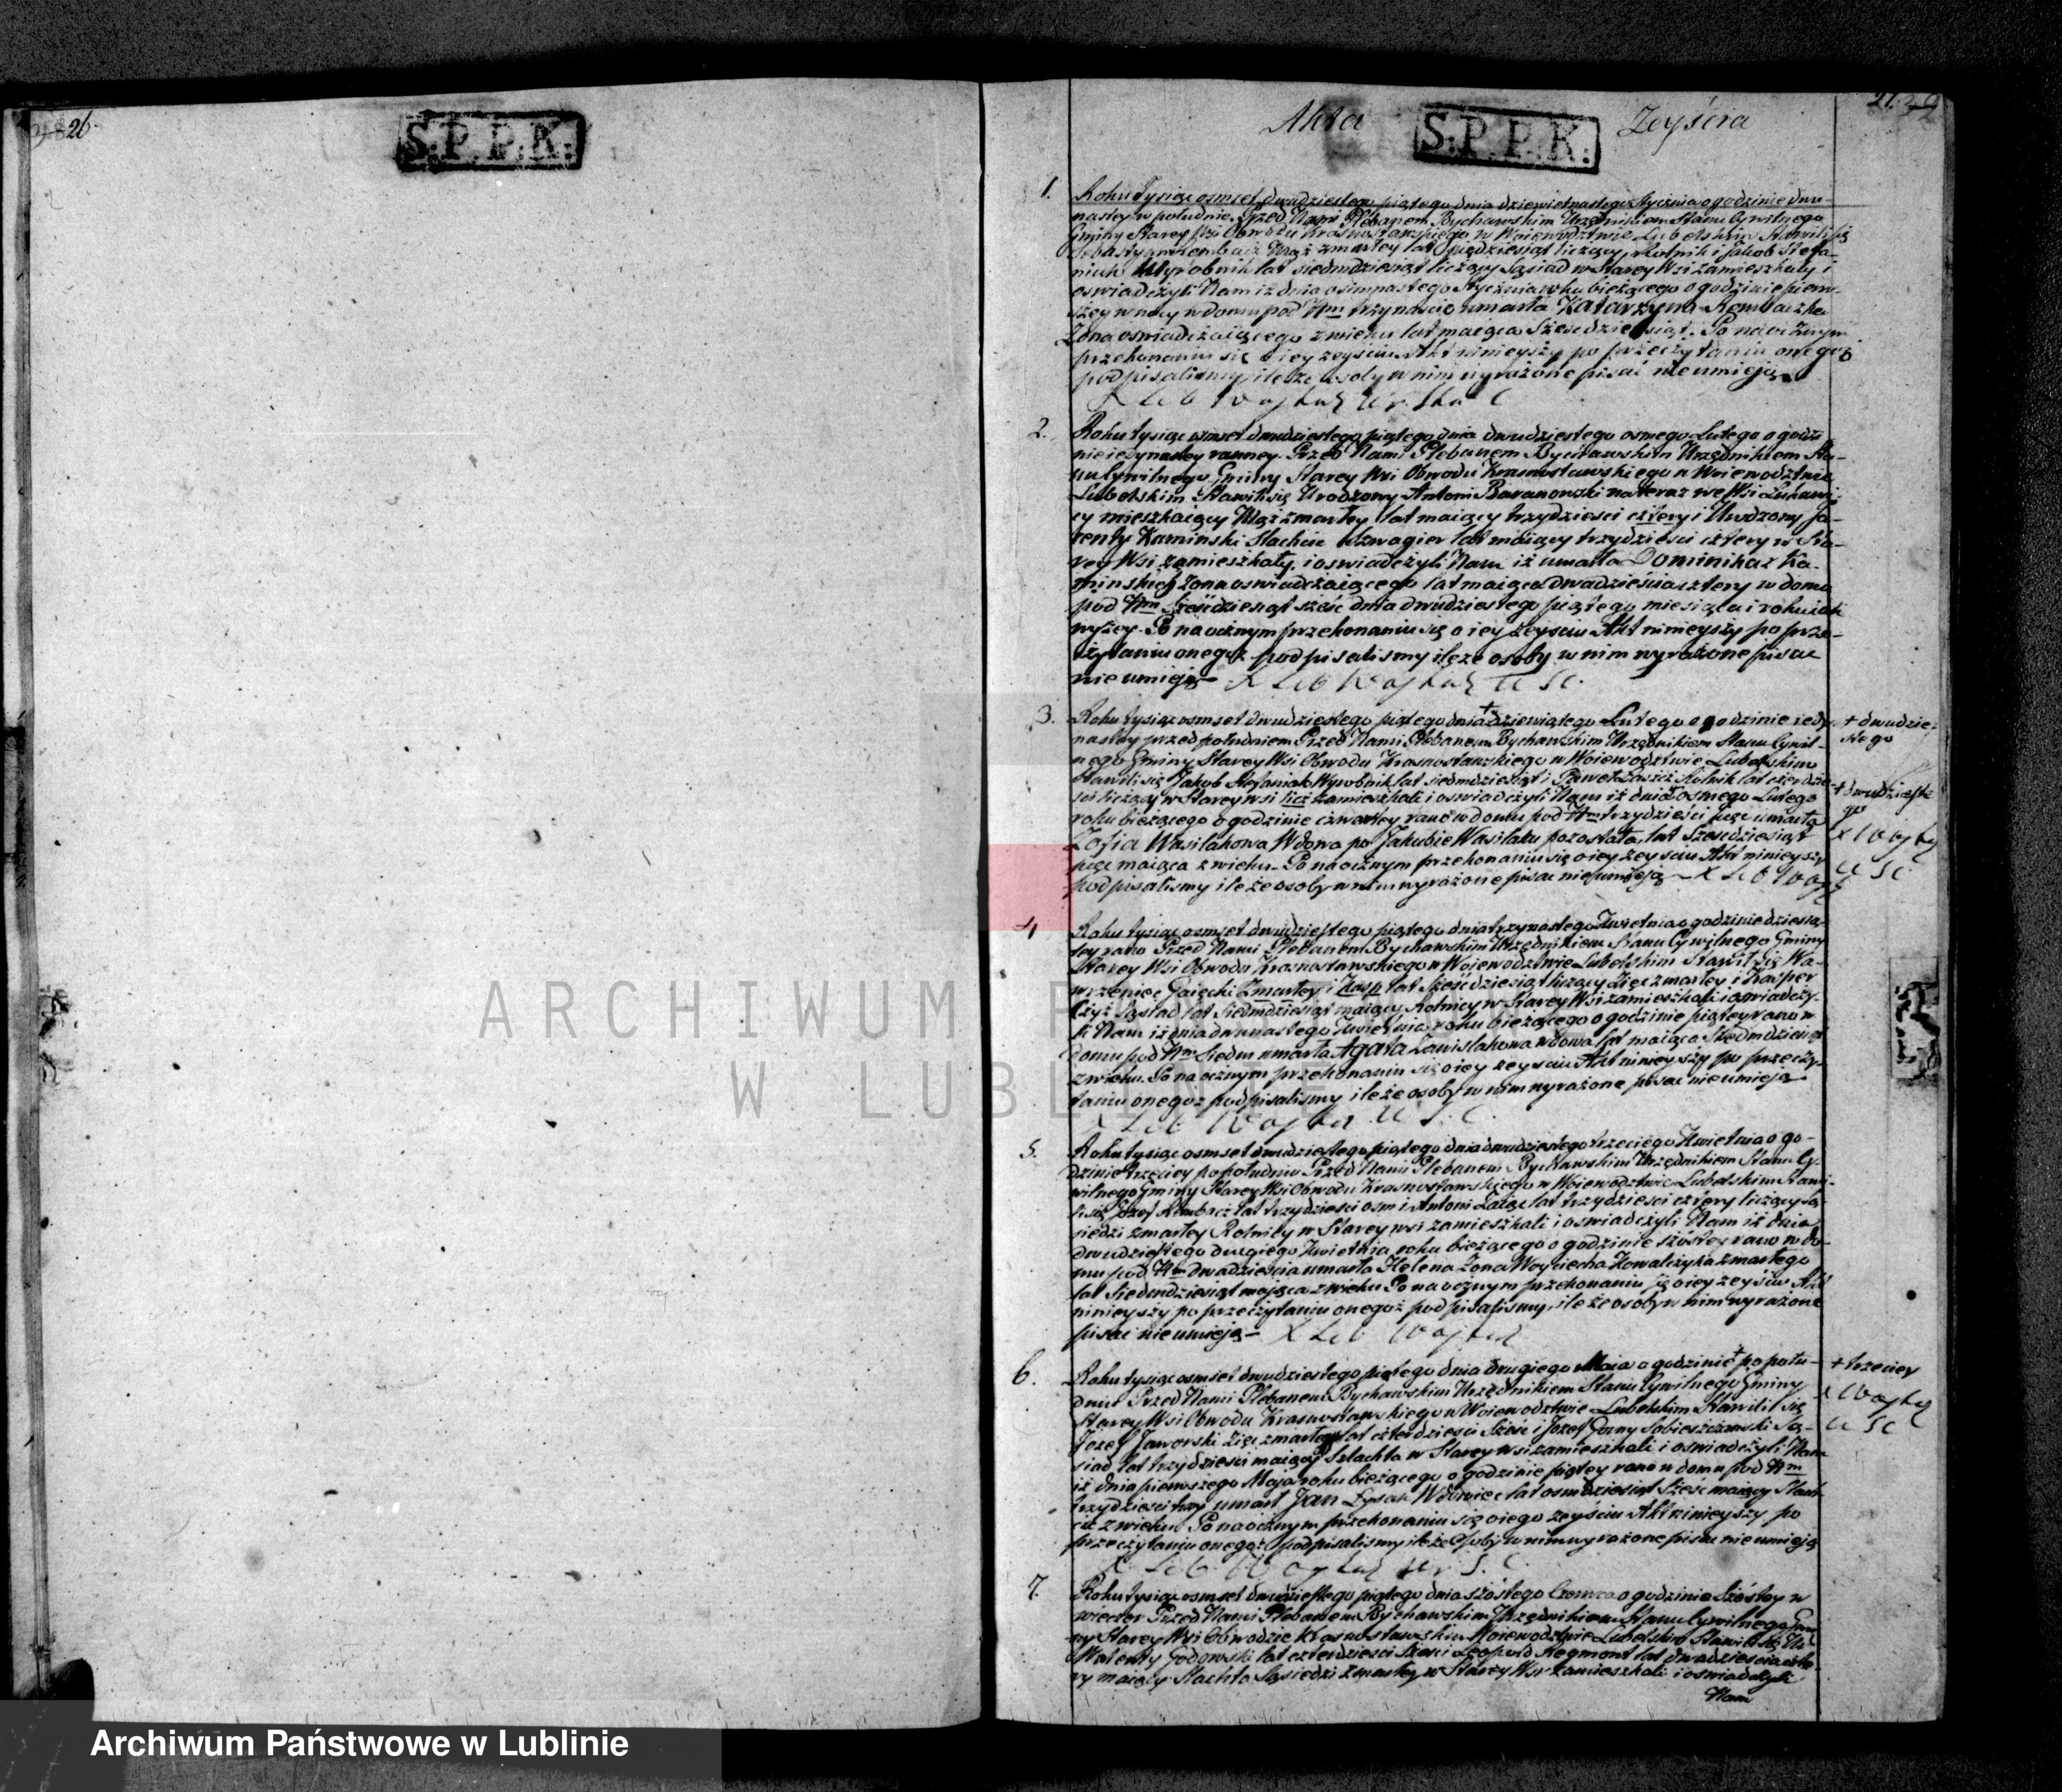 26
S.P.P.K.
Akta S.P.P.K. Zeyścia
1.
Roku tysiąc osmset dwudziestego piątego dnia dziewietnastego stycznia o godzinie dwu
nastey w południe. Przed Nami Plebanem Bychawskim Urzędnikiem Stanu Cywilnego
Gminy Starey Wsi Obwodu Krasnostawskiego w Woiewodztwie Lubelskim Stawili się
Sebastyan Rembacz Mąż zmarłey lat pięćdziesiąt liczący Rolnik i Jakob Stefa-
niak Wyrobnik lat siedmdziesiąt liczący Sąsiad w Starey Wsi zamieszkały i
oswiadczyli Nam iż dnia osimnastego Stycznia roku bieżącego o godzinie pierw-
szey w nocy w domu pod Nrm trzynascie umarła Katarzyna Rembaczka
Żona oswiadczaiącego z wieku lat maiąca Szescdziesiąt. Po naocznym
przekonaniu się o iey zeysciu Akt ninieyszy po przeczytaniu onegoż
podpisalismy ile że osoby w nim wyrażone pisać nie umieją
2.
Roku tysiąc osmset dwudziestego piątego dnia dwudziestego osmego Lutego o godzi
nie iedynastey ranney. Przed Nami Plebanem Bychawskim Urzędnikiem Sta-
nu Cywilnego Gminy Starey Wsi Obwodu Krasnostawskiego w Woiewodztwie
Lubelskim Stawili się Urodzony Antoni Baranowski na teraz we Wsi
cy mieszkaiący Mąż zmarłey lat maiący trzydziesci cztery i Urodzony
Kaminski Slachcic Szwagier lat maiący trzydziesci cztery w Sta-
rey Wsi zamieszkały, i oswiadczyli Nam iż umarła Dominika z Ka-
minskich żona oswiadczaiącego lat maiąca dwadziescia cztery w domu
pod Nrm Szescdziesiąt szesc dnia dwudziestego piątego miesiąca i roku iak
wyżey. Po naocznym przekonaniu się o iey zeysciu Akt ninieyszy po prze-
czytaniu onegoż podpisalismy ile że osoby w nim wyrażone pisac
nie umieją
3.
Roku tysiąc osmset dwudziestego piątego dnia + dziewiątego Lutego o godzinie iedy
nastey przed południem Przed Nami Plebanem Bychawskim Urzędnikiem Stanu Cywil-
nego Gminy Starey Wsi Obwodu Krasnostawskiego w Woiewodztwie Lubelskim
Stawili się Jakob Stefaniak Wyrobnik lat siedmdziesiąt i Paweł Rolnik lat czterdzie-
sci liczący w Starey wsi zamieszkali i oswiadczyli Nam iż dnia + osmego Lutego
roku bieżącego o godzinie czwartey rano w domu pod Nrm trzydziesci pięc umarła
Zofia Wasilakowa Wdowa po Jakubie Wasilaku pozostała, lat Szescdziesiąt
pięc maiąca z wieku. Po naocznym przekonaniu się o iey zeysciu Akt ninieyszy
podpisalismy ile że osoby w nim wyrażone pisac nie umieją
+ dwudzie-
stego
+ dwudzieste
go
4
Roku tysiąc osmset dwudziestego piątego dnia trzynastego Kwietnia o godzinie dziesią-
tey rano Przed Nami Plebanem Bychawskim Urzędnikiem Stanu Cywilnego Gminy
Starey Wsi Obwodu Krasnostawskiego w Woiewodztwie Lubelskim Stawił się Wa-
wrzeniec Gaięcki Zmarłey i Kasp lat Szescdziesiąt liczący Zięc zmarłey i Kasper
Sąsiad lat Siedmdziesiąt maiący Rolnicy w Starey Wsi zamieszkali i oswiadczy-
li Nam iż dnia dwunastego Kwietnia roku bieżącego o godzinie piątey rano w
domu pod Nrm Siedm umarła Agata Zawislakowa wdowa lat maiąca Siedmdziesiąt
z wieku. Po naocznym przekonaniu się o iey zeysciu Akt ninieyszy po przeczy-
taniu onegoż podpisalismy ile że osoby w nim wyrażone pisac nie umieją
5.
Roku tysiąc osmset dwudziestego piątego dnia dwudziestego trzeciego Kwietnia o go-
dzinie trzeciey po południu Przed Nami Plebanem Bychawskim Urzędnikiem Stanu Cy-
wilnego Gminy Starey Wsi Obwodu Krasnostawskiego w Woiewodztwie Lubelskim Stawi-
li się Jozef Rembacz lat trzydziesci osm i Antoni lat trzydziesci cztery liczący Są-
siedzi zmarłey Rolnicy w Starey wsi zamieszkali i oswiadczyli Nam iż dnia
dwudziestego drugiego Kwietnia roku bieżącego o godzinie szóstey rano w do-
mu pod Nrm dwadziescia umarła Helena Żona Woyciecha Kowalczyka zmarłego
lat Siedmdziesiąt maiąca z wieku Po naocznym przekonaniu się o iey zeysciu Akt
ninieyszy po przeczytaniu onegoż podpisalismy, ile że osoby w nim wyrażone
pisac nie umieją
6.
Roku tysiąc osmset dwudziestego piątego dnia drugiego Maia o godzinie + po połu-
dniu Przed Nami Plebanem Bychawskim Urzędnikiem Stanu Cywilnego Gminy
Starey Wsi Obwodu Krasnostawskiego w Woiewodztwie Lubelskim Stawili się
Jozef Jaworski Zięc zmarłego lat czterdziesci Szesc i Jozef Gorny Sobieszczanski Są-
siad lat trzydziesci maiący Szlachta w Starey wsi zamieszkali i oswiadczyli Nam
iż dnia pierwszego Maja roku bieżącego o godzinie piątey rano w domu pod Nrm
trzydziesci trzy umarł Jan Łysak Wdowiec lat osmdziesiąt Szesc maiący Slach-
cic z wieku Po naocznym przekonaniu się o iego zeysciu Akt ninieyszy po
przeczytaniu onegoż podpisalismy ile że osoby w nim wyrażone pisac nie umieją
+ trzeciey
7.
Roku tysiąc osmset dwudziestego piątego dnia szóstego Czerwca o godzinie Szóstey w
wieczor Przed Nami Plebanem Bychawskim Urzędnikiem Stanu Cywilnego Gmi
ny Starey Wsi Obwodzie Krasnostawskim Woiewodztwie Lubelskim Stawili się
Walenty Godowski lat czterdziesci Szesc i Leopold Regmont lat dwadziescia czte
ry maiący Slachta Sąsiedzi zmarłey w Starey Wsi zamieszkali i oswiadczyli
Nam
ARCHIWUM
W LUBLINIE
Archiwum Państwowe w Lublinie